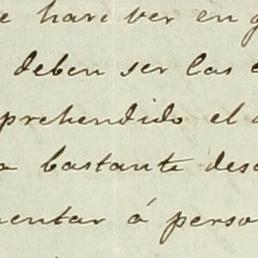 e hare ver en g
deben ser las e
prehendido el a
a bastante desc
mentar á perso